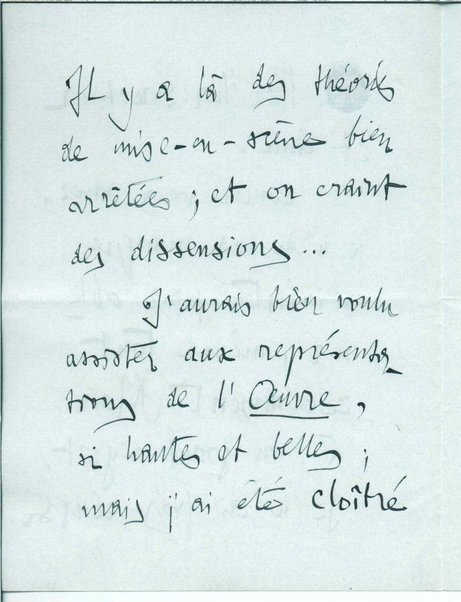 Il y a là des théories
de mise-en-scène bien
arrêtées ; et on craint
des dissensions...
J'aurais bien voulu
assister aux représenta-
tions de l'Œuvre,
si hautes et belles ;
mais j'ai été cloîtré